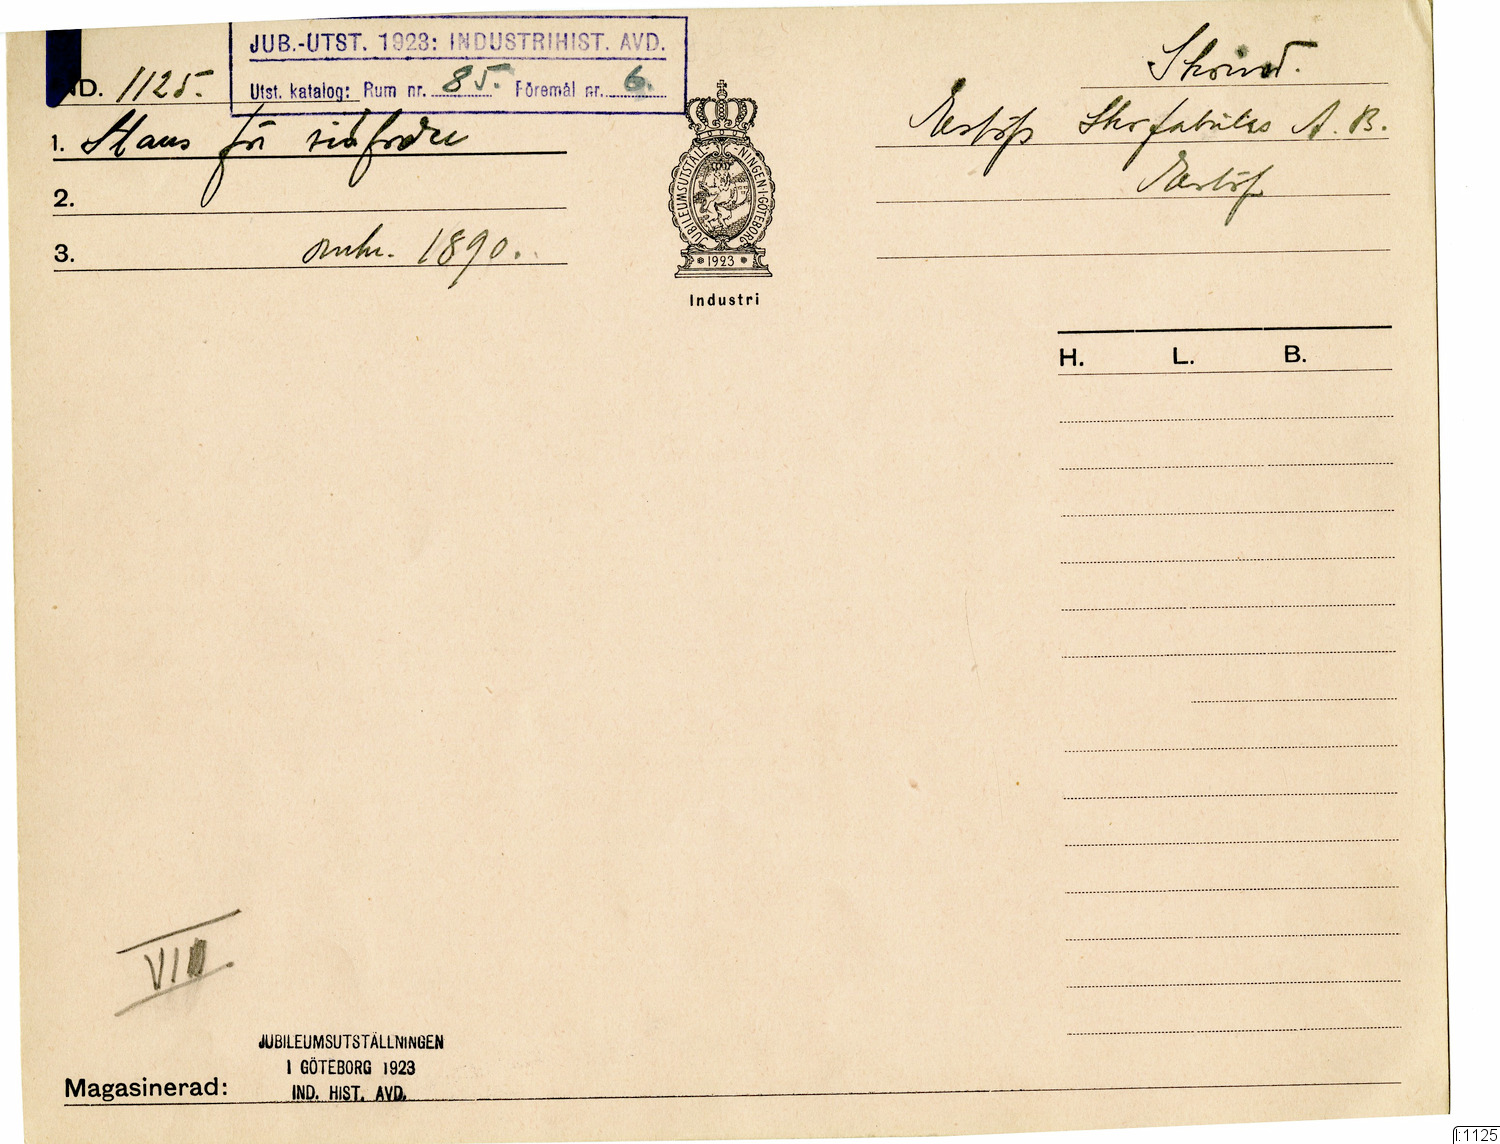 JUB.-UTST. 1923: INDUSTRIHIST. AVD.
Utst. katalog: Rum nr. 85. Föremål nr. 6.
IND. 1125.
1. Stans för sidfoder
2.
3. omkr. 1890.
JUBILEUMSUTSTÄLL-NINGEN I GÖTEBORG
1923
Industri
Skoind.
Eslöfs Skofabriks A.B.
Eslöf
H. L. B.
VI
JUBILEUMSUTSTÄLLNINGEN
I GÖTEBORG 1923
IND. HIST. AVD.
Magasinerad:
I:1125